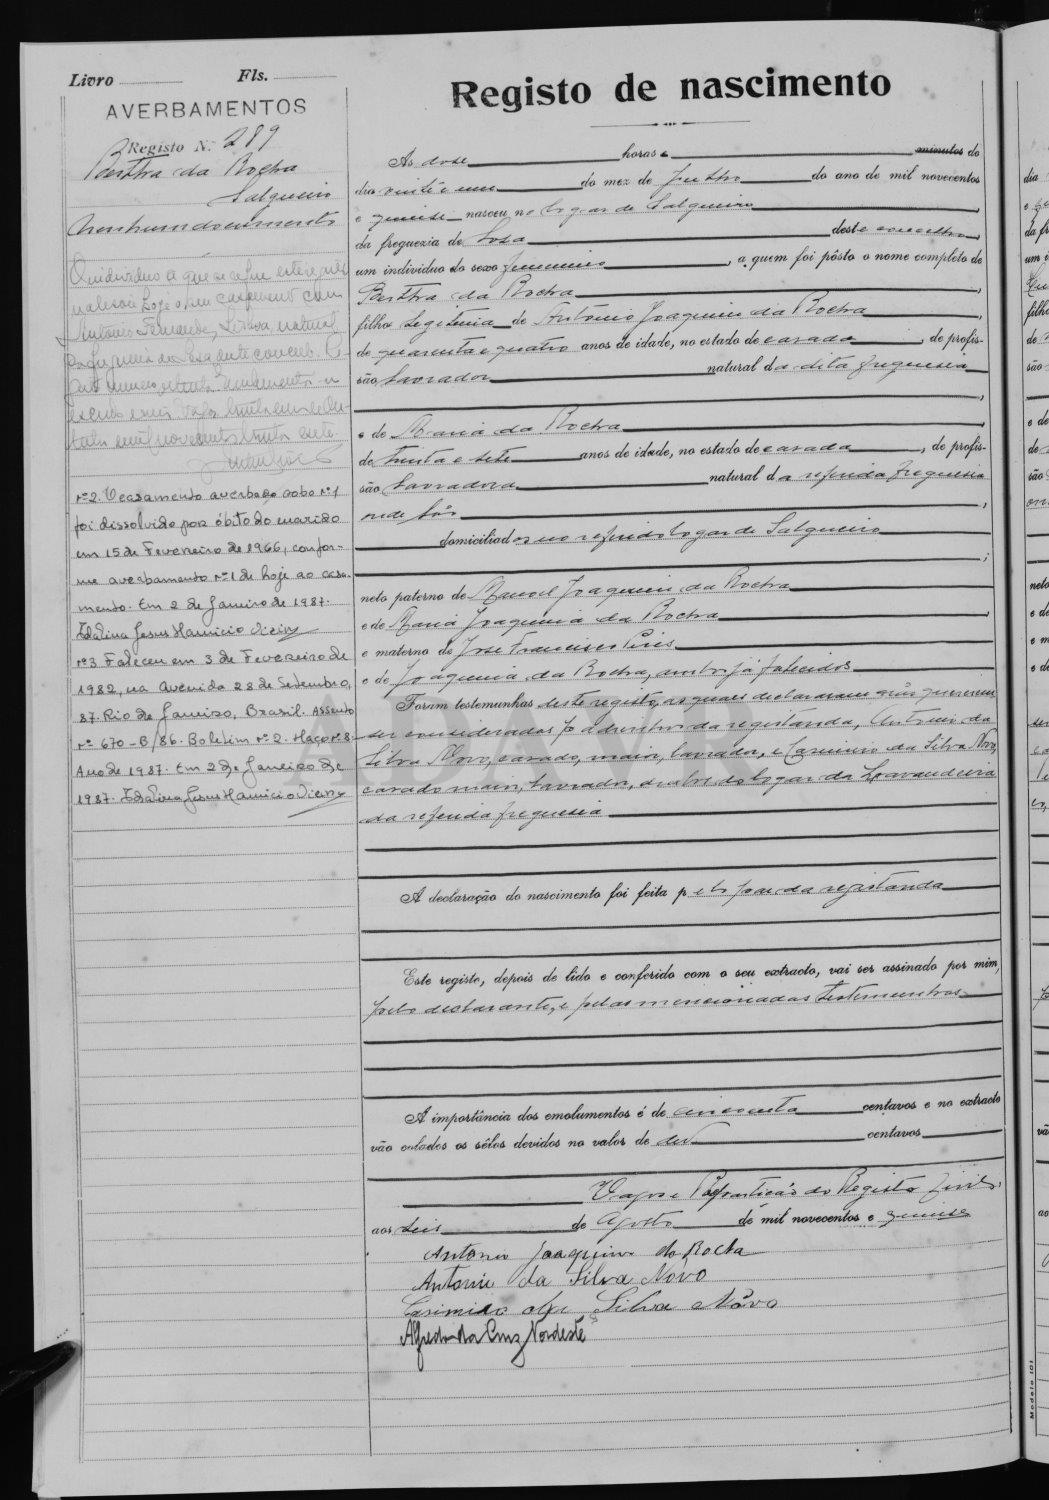 Livro Fls.
AVERBAMENTOS
Registo N.º 289
Berthra da Rocha
Salgueiro
Nenhum documento
O individuo a que se refere este
hoje o seu casamento com
Antonio Fernandes, natural
da freguesia de Sosa deste concelho.
mil novecentos trinta e sete.
nº 2. O casamento averbado sob o nº 1
foi dissolvido por óbito do marido
em 15 de Fevereiro de 1966, confor-
me averbamento nº 1 de hoje ao casa-
mento. Em 2 de Janeiro de 1987.
Idalina Jesus Hamicio Vieira
nº 3 Faleceu em 3 de Fevereiro de
1982, na Avenida 28 de Setembro,
87. Rio de Janeiro, Brasil. Assento
nº 670-B/86. Boletim nº 2. Maço nº 8
Ano de 1987. Em 2 de Janeiro de
1987. Idalina Jesus Hamicio Vieira
Registo de nascimento
Ás dose horas e minutos do
dia vinte e um do mez de Julho do ano de mil novecentos
e quinse nasceu no logar de Salgueiro
da freguezia de Sosa deste concelho,
um individuo do sexo femenino, a quem foi pôsto o nome completo de
Berthra da Rocha,
filha legitima de António Joaquim da Rocha,
de quarenta e quatro anos de idade, no estado de casado, de profis-
são lavrador natural da dita freguesia,
e de Maria da Rocha,
de trinta e sete anos de idade, no estado de casada, de profis-
são lavradora natural da referida freguesia
onde são,
domiciliados no referido logar de Salgueiro;
neto paterno de Manoel Joaquim da Rocha
e de Maria Joaquina da Rocha,
e materno de José Francisco Pires
e de Joaquina da Rocha, ambos já falecidos
Foram testemunhas deste registo, as quaes declararam não quererem
ser consideradas padrinhos da registanda, António da
Silva Novo, casado, maior, lavrador, e Casimiro da Silva Novo,
casado maior, lavrador, ambos do logar da Lavandeira
da referida freguesia
A declaração do nascimento foi feita pelo pae da registanda
Este registo, depois de lido e conferido com o seu extracto, vai ser assinado por mim,
pelo declarante, e pelas mencionadas testemunhas
A importância dos emolumentos é de cincoenta centavos e no extracto
vão colados os sêlos devidos no valor de dez centavos
Vagos e Repartição do Registo Civil,
aos seis de Agosto de mil novecentos e quinse
Antonio Joaquim da Rocha
Antonio da Silva Novo
Casimiro da Silva Nôvo
Alfredo da Cruz Nordeste
ADAVR
Modelo 101